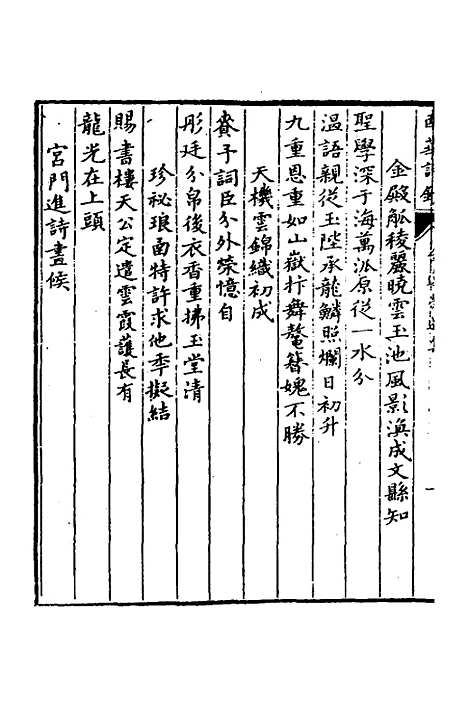 金殿觚稜麗曉雲玉池風影渙成文縣知
聖學深于海萬派原從一水分
溫語親從玉陛承龍鱗照爛日初升
九重恩重如山嶽抃舞鼇簪媿不勝
天機雲錦織初成
賚予詞臣分外榮憶自
彤廷分帛後衣香重拂玉堂清
珍秘琅函特許求他季擬結
賜書樓天公定遣雲霞護長有
龍光在上頭
宮門進詩晝候